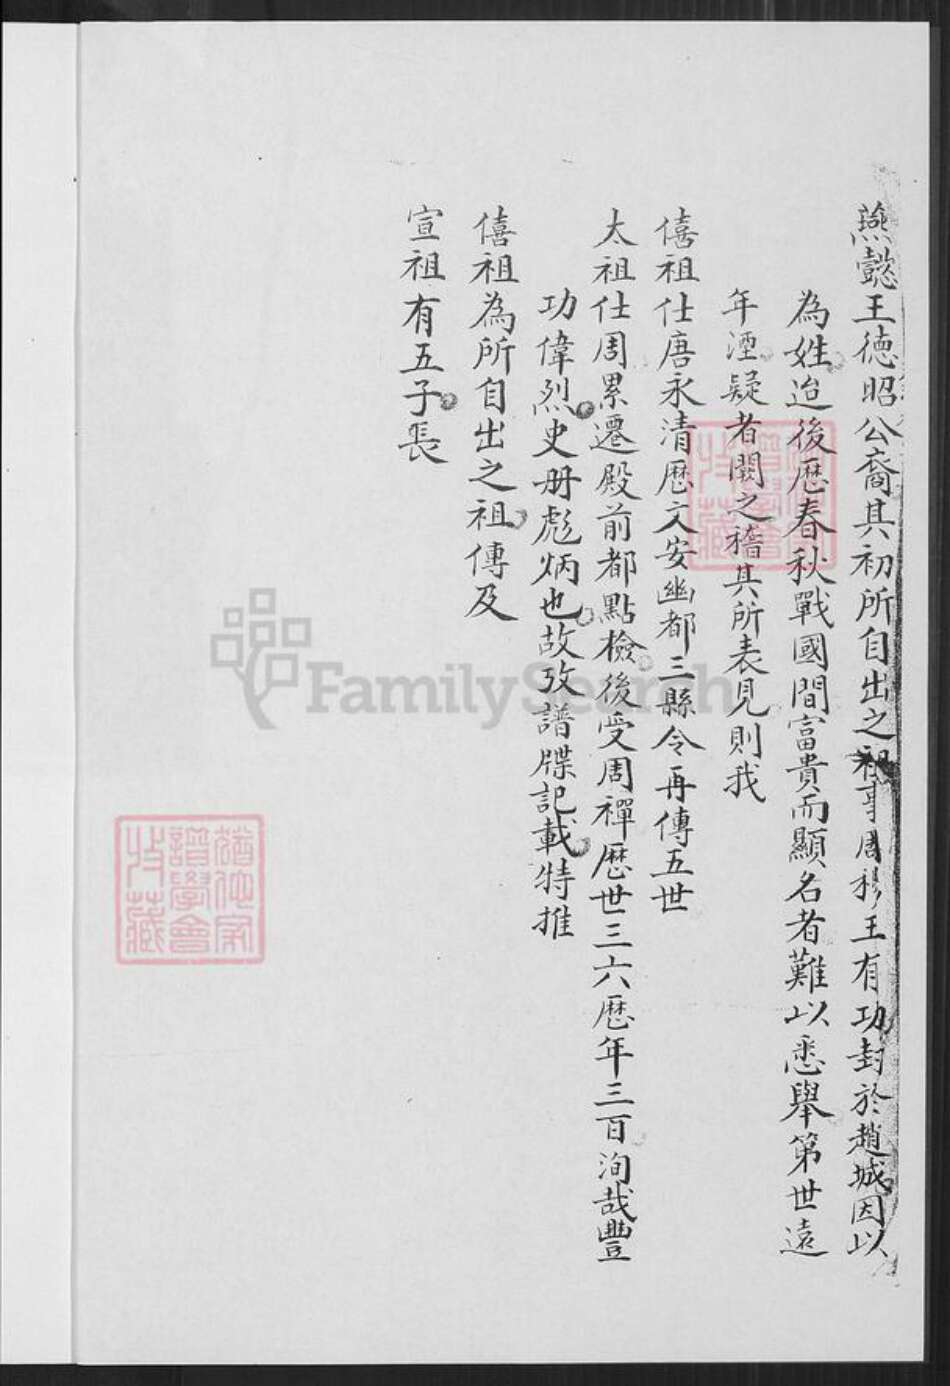 燕懿王德昭公裔其初所自出之祖事周穆王有功封於趙城因以
為姓迨後歷春秋戰國間富貴而顯名者難以悉舉第世遠
年湮疑者闕之稽其所表見則我
僖祖仕唐永清歷文安幽都三縣令再傳五世
太祖仕周累遷殿前都點檢後受周禪歷世三六歷年三百洵哉豐
功偉烈史册彪炳也故攷譜牒記載特推
僖祖為所自出之祖傳及
宣祖有五子長
FamilySearch